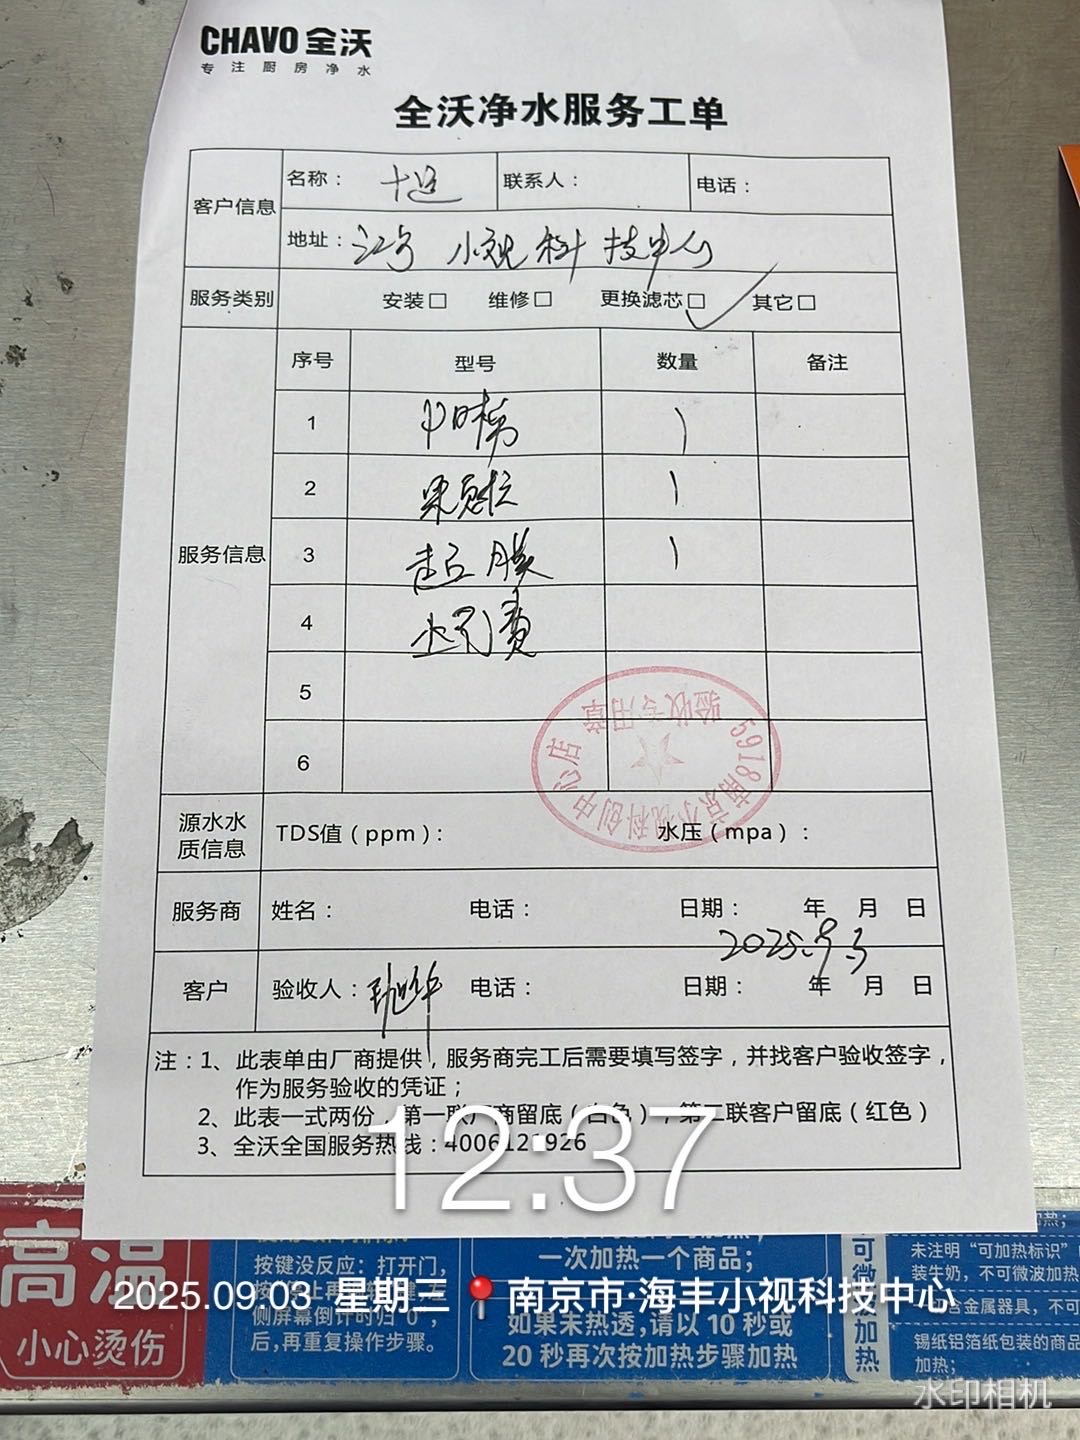 CHAVO 全沃
专注厨房净水
全沃净水服务工单
客户信息
名称：
联系人：
电话：
地址： 小视科技中心
服务类别
安装□ 维修□ 更换滤芯□ ✓ 其它□
服务信息
序号 型号 数量 备注
1 1
2 1
3 膜 1
4 费
5
6
5918南京小视科创中心店
验收专用章
源水水质信息
TDS值（ppm）：
水压（mpa）：
服务商
姓名：
电话：
日期： 年 月 日
2025.9.3
客户
验收人：
电话：
日期： 年 月 日
注：1、此表单由厂商提供，服务商完工后需要填写签字，并找客户验收签字，
作为服务验收的凭证；
2、此表一式两份，第一联厂商留底（白色），第二联客户留底（红色）
3、全沃全国服务热线：4006121926
12:37
2025.09.03 星期三 南京市·海丰小视科技中心
高温
小心烫伤
按键没反应：打开门，
侧屏幕倒计时归“0”，
后，再重复操作步骤。
一次加热一个商品；
如果未热透，请以10秒或
20秒再次按加热步骤加热
可微波加热
未注明“可加热标识”
装牛奶，不可微波加热
含金属器具，不可
锡纸铝箔纸包装的商品
加热；
水印相机